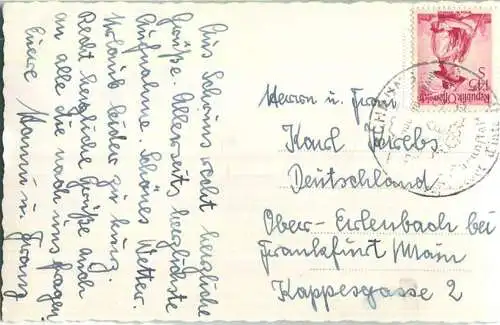 Aus Schruns recht herzliche
Grüße. Allerseits herzlichste
Aufnahme. Schönes Wetter.
Urlaub leider zu kurz.
Recht herzliche Grüße auch
an alle die nach uns fragen.
Eure
Herrn u. Frau
Karl
Deutschland
Ober-Erlenbach bei
Frankfurt/Main
Kappesgasse 2
Republik Österreich
S 1.45